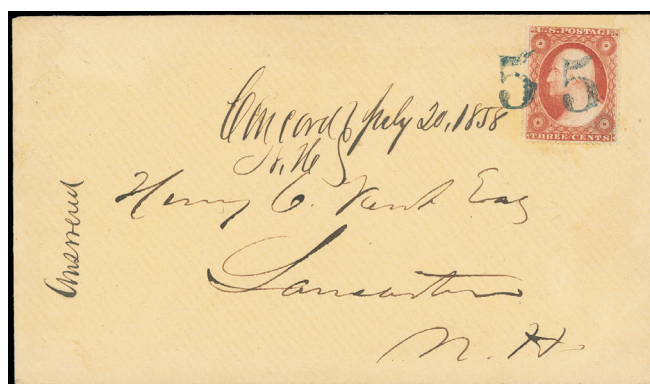 U.S. POSTAGE
5 5
THREE CENTS
Concord July 20, 1858
N. H
Henry O. Kent Esq
Lancaster
N. H
Answered